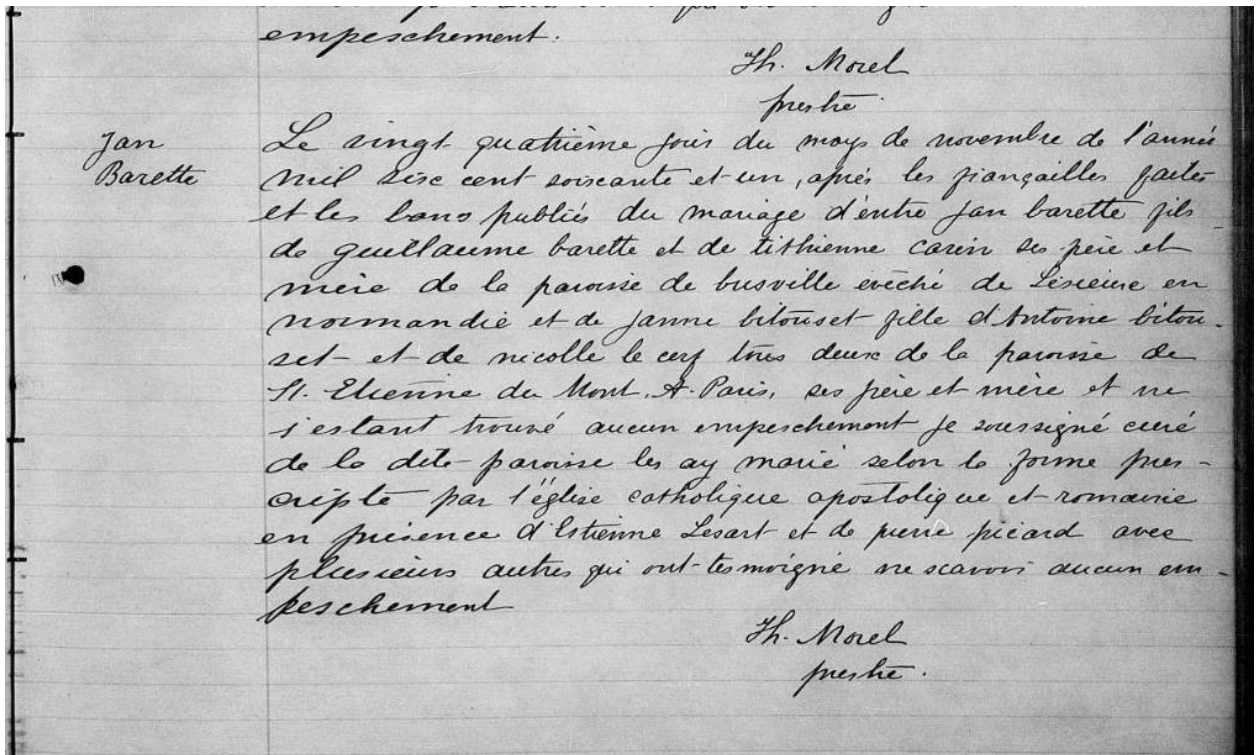 empeschement.
Th. Morel
prestre.
Jan
Barette
Le vingt quatrième jour du moys de novembre de l'année
mil sisc cent soiscante et un, après les fiançailles faites
et les bans publiés du mariage d'entre jan barette fils
de guillaume barette et de tithienne carin ses père et
mère de la paroisse de busville evêché de Lésieuse en
normandie et de janne bitouset fille d'Antoine bitou-
set et de nicolle le cerf tous deux de la paroisse de
St. Etienne du Mont. A. Paris, ses père et mère et ne
s'estant trouvé aucun empeschement je soussigné curé
de la dite paroisse les ay marié selon la forme pres-
cripte par l'église catholique apostolique et romaine
en présence d'Estienne Lesart et de pierre picard avec
plusieurs autres qui ont tesmoigné ne scavoir aucun em-
peschement
Th. Morel
prestre.